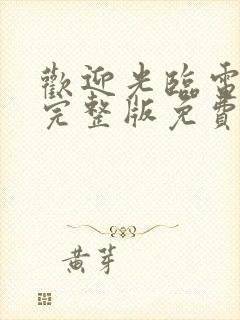 歡迎光臨雷
完整版免費
黃芽